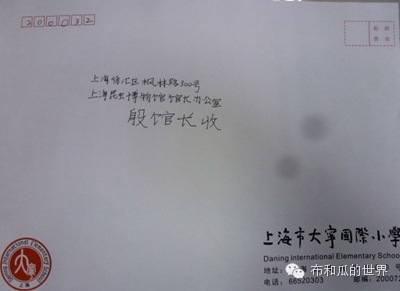 200032
贴邮
票处
上海徐汇区枫林路300号
上海昆虫博物馆馆长办公室
殷馆长收
上海市大寧國際小學
Daning International Elementary School
地址:
电话: 66520303
邮编: 200072
布和瓜的世界
Daning International Elementary School
上海